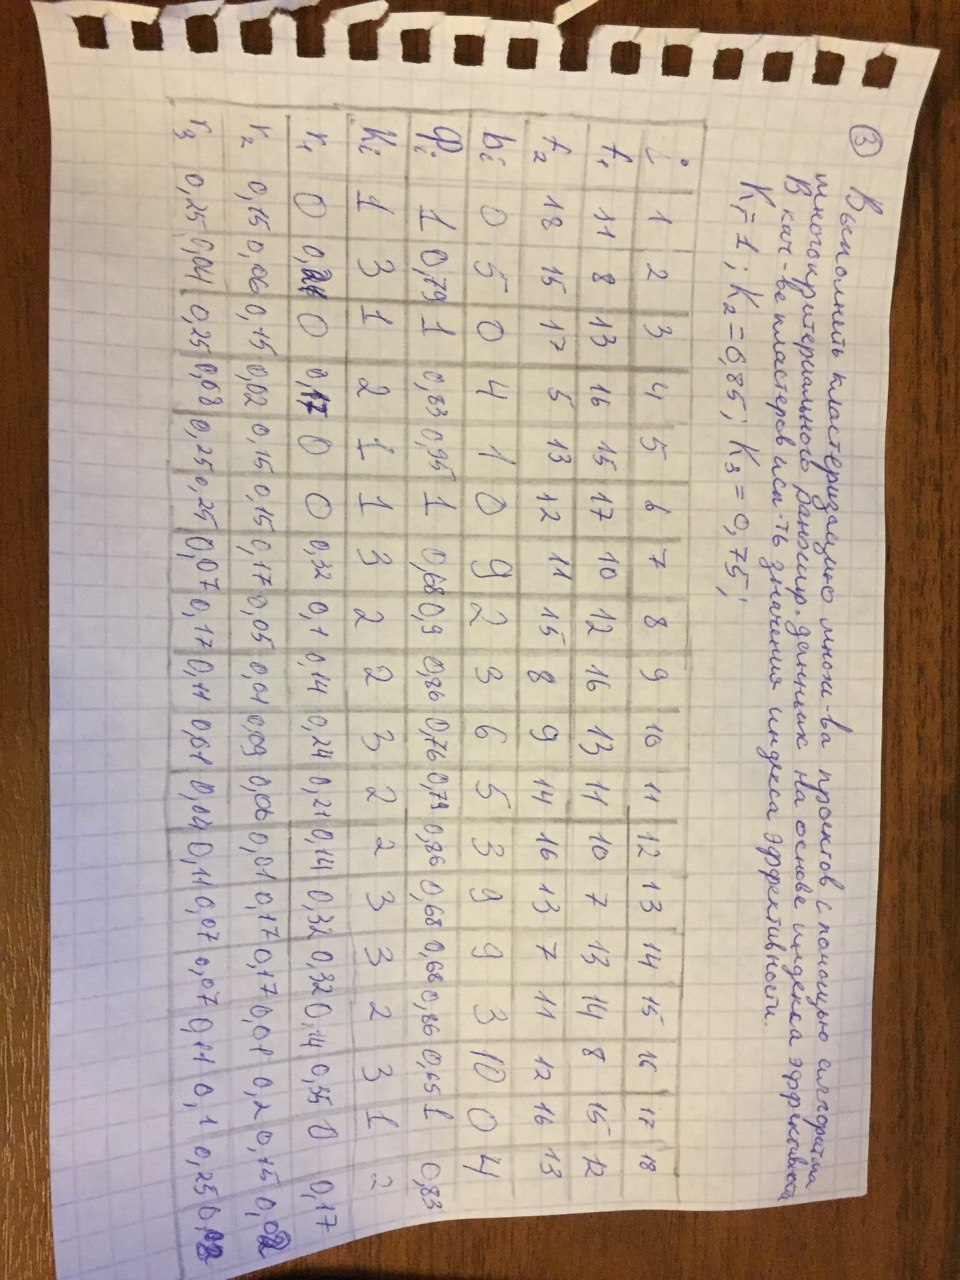 ③ Выполнить кластеризацию множ-ва проектов с помощью алгоритма
многокритериального ранжир. данных на основе индекса эффективности
В кач-ве кластеров исп-ть значения индекса эффективности.
K₁=1; K₂=0,85; K₃=0,75;
i 1 2 3 4 5 6 7 8 9 10 11 12 13 14 15 16 17 18
f₁ 11 8 13 16 15 17 10 12 16 13 11 10 7 13 14 8 15 12
f₂ 18 15 17 5 13 12 11 15 8 9 14 16 13 7 11 12 16 13
bᵢ 0 5 0 4 1 0 9 2 3 6 5 3 9 9 3 10 0 4
Φᵢ 1 0,79 1 0,83 0,95 1 0,68 0,9 0,86 0,76 0,79 0,86 0,68 0,68 0,86 0,65 1 0,83
Kᵢ 1 3 1 2 1 1 3 2 2 3 2 2 3 3 2 3 1 2
r₁ 0 0,21 0 0,17 0 0 0,32 0,1 0,14 0,24 0,21 0,14 0,32 0,32 0,14 0,35 0 0,17
r₂ 0,15 0,06 0,15 0,02 0,15 0,15 0,17 0,05 0,01 0,09 0,06 0,01 0,17 0,17 0,01 0,2 0,15 0,02
r₃ 0,25 0,04 0,25 0,08 0,25 0,25 0,07 0,17 0,11 0,01 0,04 0,11 0,07 0,07 0,11 0,1 0,25